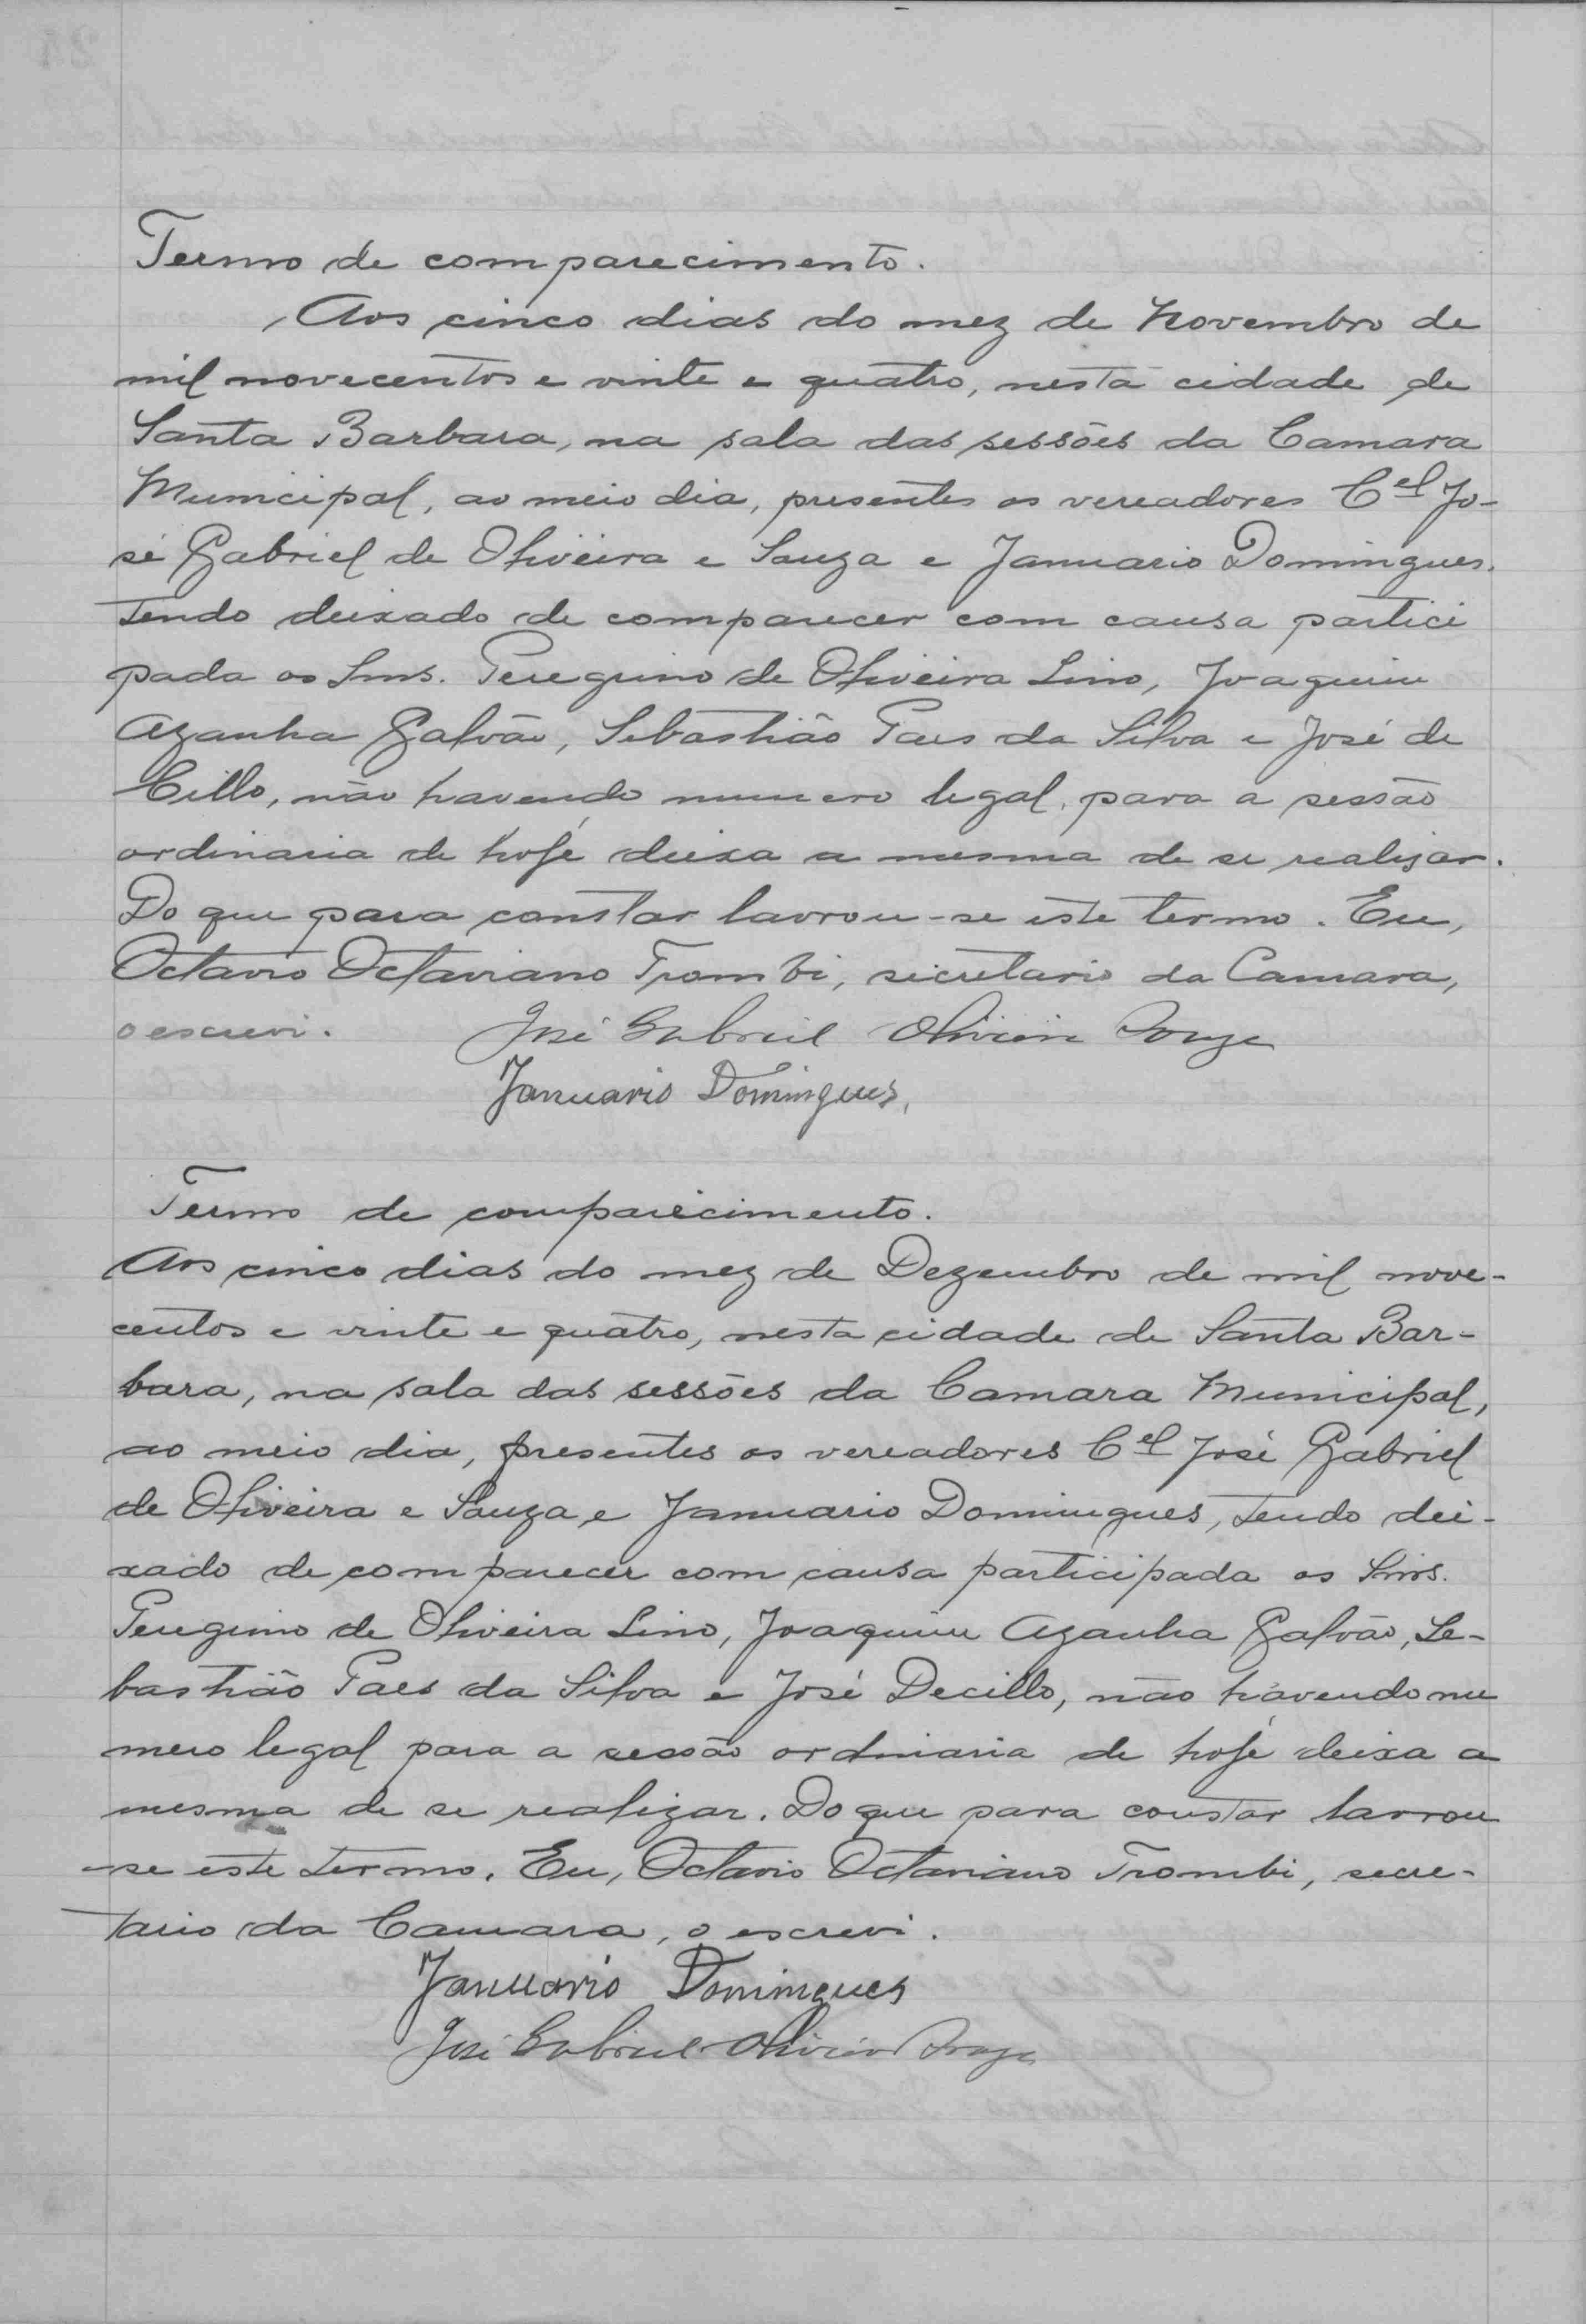 Termo de comparecimento.
Aos cinco dias do mez de Novembro de
mil novecentos e vinte e quatro, nesta cidade de
Santa Barbara, na sala das sessões da Camara
Municipal, ao meio dia, presentes os vereadores Cel Jo-
sé Gabriel de Oliveira e Souza e Januario Domingues.
Tendo deixado de comparecer com causa partici
pada os Snrs. Peregrino de Oliveira Lino, Joaquim
Azanha Galvão, Sebastião Paes da Silva e José de
Cillo, não havendo numero legal, para a sessão
ordinaria de hoje deixa a mesma de se realisar.
Do que para constar lavrou-se este termo. Eu,
Octavio Octaviano Trombi, secretario da Camara,
o escrevi. José Gabriel Oliveira Souza
Januario Domingues,
Termo de comparecimento.
Aos cinco dias do mez de Dezembro de mil nove-
centos e vinte e quatro, nesta cidade de Santa Bar-
bara, na sala das sessões da Camara Municipal,
ao meio dia, presentes os vereadores Cel José Gabriel
de Oliveira e Souza, e Januario Domingues, tendo dei-
xado de comparecer com causa participada os Snrs.
Peregrino de Oliveira Lino, Joaquim Azanha Galvão, Se-
bastião Paes da Silva e José Decillo, não havendo nu
mero legal para a sessão ordinaria de hoje deixa a
mesma de se realizar. Do que para constar lavrou
-se este termo. Eu, Octavio Octaviano Trombi, secre-
tario da Camara, o escrevi.
Januario Domingues
José Gabriel Oliveira Souza